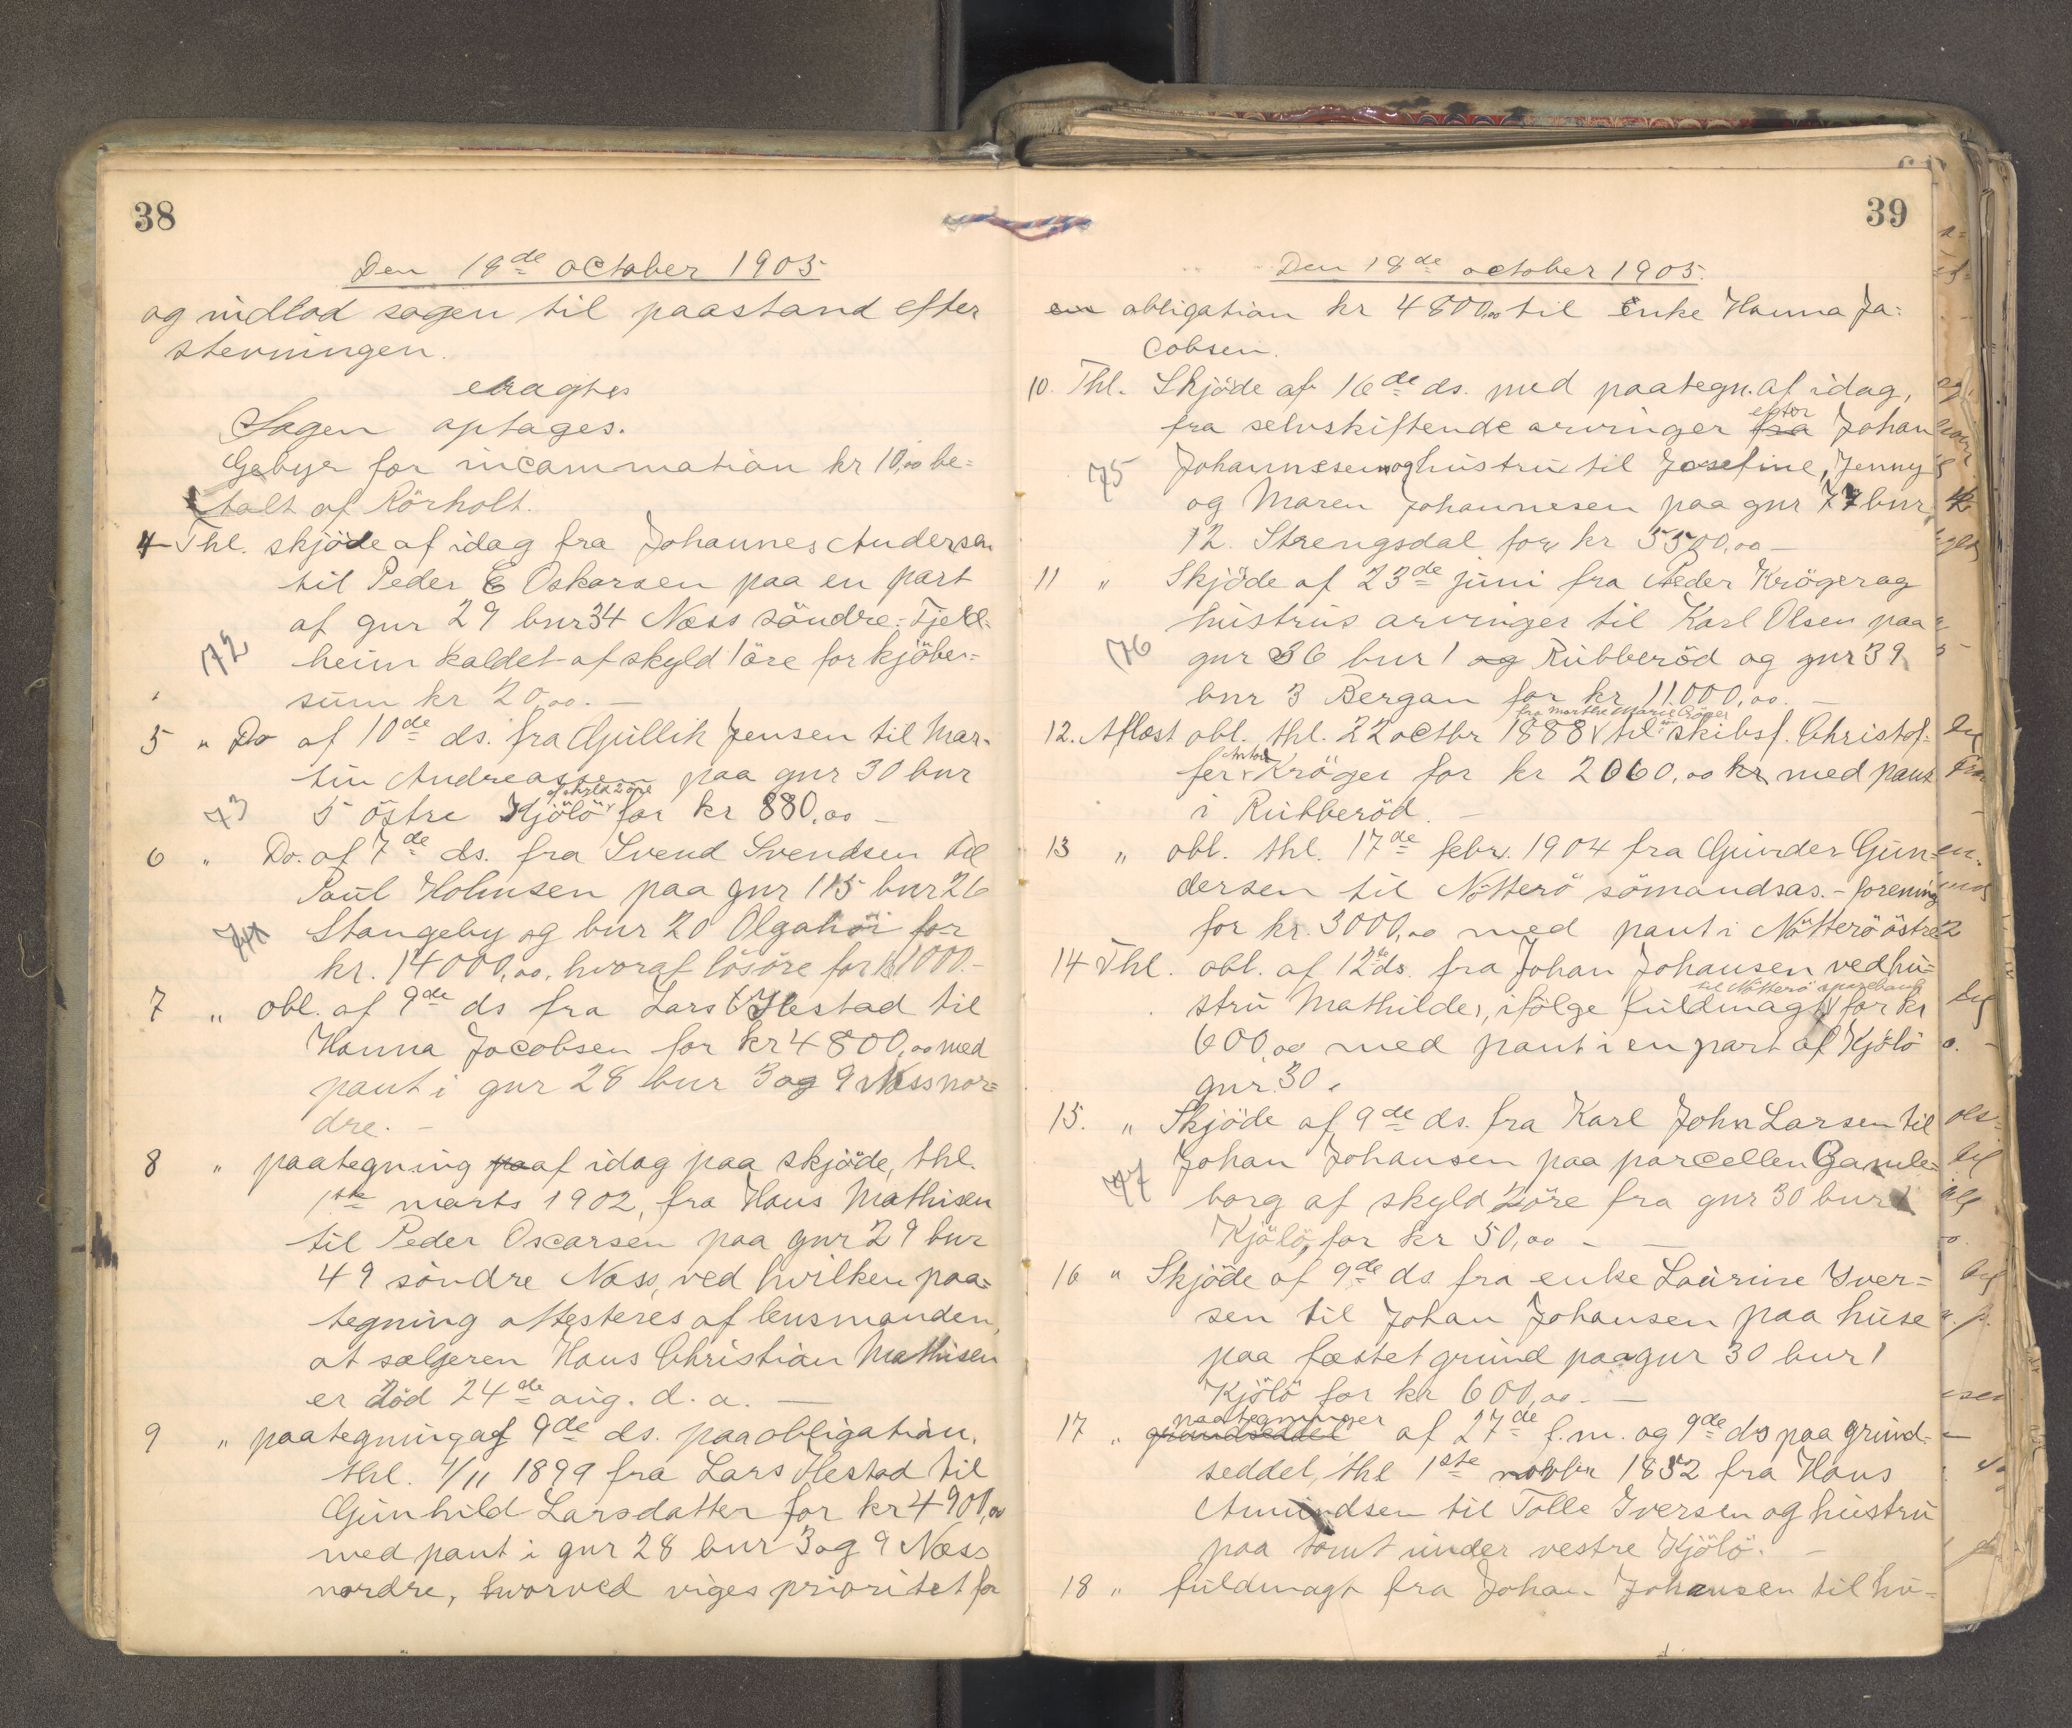 38
Den 18de october 1905
og indlod sagen til paastand efter
stevningen.
eragtes
Sagen optages.
Gebyr for incammation kr 10,00 be=
talt af Rörholt.
4 Thl. skjöde af idag fra Johannes Andersen
til Peder E Oskarsen paa en part
af gnr 29 bnr 34 Næss söndre: Fjell-
72 heim kaldet af skyld 1 öre for kjöbe-
sum kr 20,00. —
5 " Do af 10de ds. fra Gullik Jensen til Mar-
tin Andreassen paa gnr 30 bnr
af skyld 2 öre
73 5 östre Kjölö for kr 880,00 —
6 " Do. af 7de ds. fra Svend Svendsen til
Paul Holmsen paa gnr 115 bnr 26
74 Stangeby og bnr 20 Olgahöi for
kr. 14000,00, hvoraf lösöre for kr 1000.-
7 " obl. af 9de ds fra Lars Hestad til
Hanna Jacobsen for kr 4800,00 med
pant i gnr 28 bnr 3 og 9 Næss nor=
dre. —
8 " paategning af idag paa skjöde, thl.
1ste marts 1902, fra Hans Mathisen
til Peder Oscarsen paa gnr 29 bnr
49 söndre Næss, ved hvilken paa=
tegning attesteres af lensmanden,
at sælgeren Hans Christian Mathisen
er död 24de aug. d. a. —
9 " paategning af 9de ds. paa obligation,
thl. 7/11 1899 fra Lars Hestad til
Gunhild Larsdatter for kr 4900,00
med pant i gnr 28 bnr 3 og 9 Næss
nordre, hvorved viges prioritet for
39
Den 18de october 1905.
en obligation kr 4800,00 til Enke Hanna Ja=
cobsen.
10. Thl. Skjöde af 16de ds. med paategn. af idag,
efter
fra selvskiftende arvinger fra Johan
75 Johannesen og hustru til Josefine, Jenny
og Maren Johannesen paa gnr 77 bnr
12. Strengsdal for kr 5500,00 —
11 " Skjöde af 23de juni fra Peder Kröger og
hustrus arvinger til Karl Olsen paa
76 gnr 36 bnr 1 og Rubberöd og gnr 39
bnr 3 Bergan for kr 11.000,00. —
fra Marthe Marie Cröger
12. Aflæst obl. thl. 22 octbr 1888 til skibsf. Christof-
Anton
fer Kröger for kr 2060,00 kr med pant
i Rubberöd. —
13 " obl. thl. 17de febr. 1904 fra Gunder Gun-
dersen til Nötterö sömandsas.-forening
for kr. 3000,00 med pant i Nötterö östre
14 Thl. obl. af 12te ds. fra Johan Johansen ved hu=
til Nötterö sparebank
stru Mathilde, ifölge fuldmagt for kr
600,00 med pant i en part af Kjölö
gnr 30.
15. " Skjöde af 9de ds. fra Karl John Larsen til
Johan Johansen paa parcellen Gamle-
77 borg af skyld 2 öre fra gnr 30 bnr 1
Kjölö, for kr 50,00 — —
16 " Skjöde af 9de ds fra enke Laurine Iver=
sen til Johan Johansen paa huse
paa fæstet grund paa gnr 30 bnr 1
Kjölö for kr 600,00. —
paategninger
17 " grundseddel af 27de f.m. og 9de ds paa grund-
seddel, thl 1ste novbr 1852 fra Hans
Amundsen til Tolle Iversen og hustru
paa tomt under vestre Kjölö. —
18 " fuldmagt fra Johan Johansen til hu-